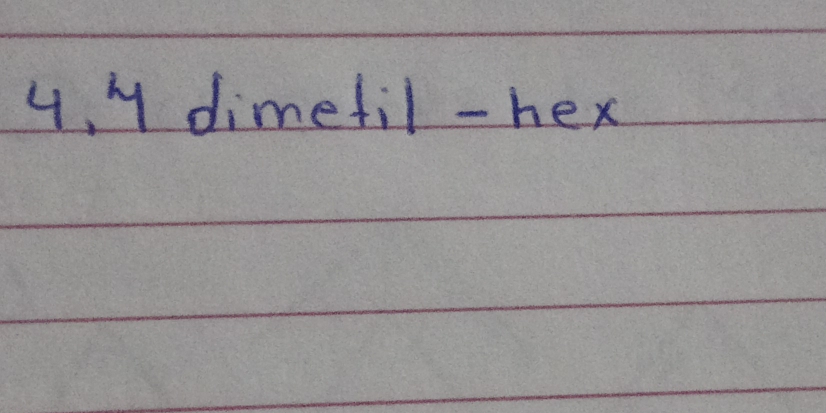 4,4 dimetil - hex